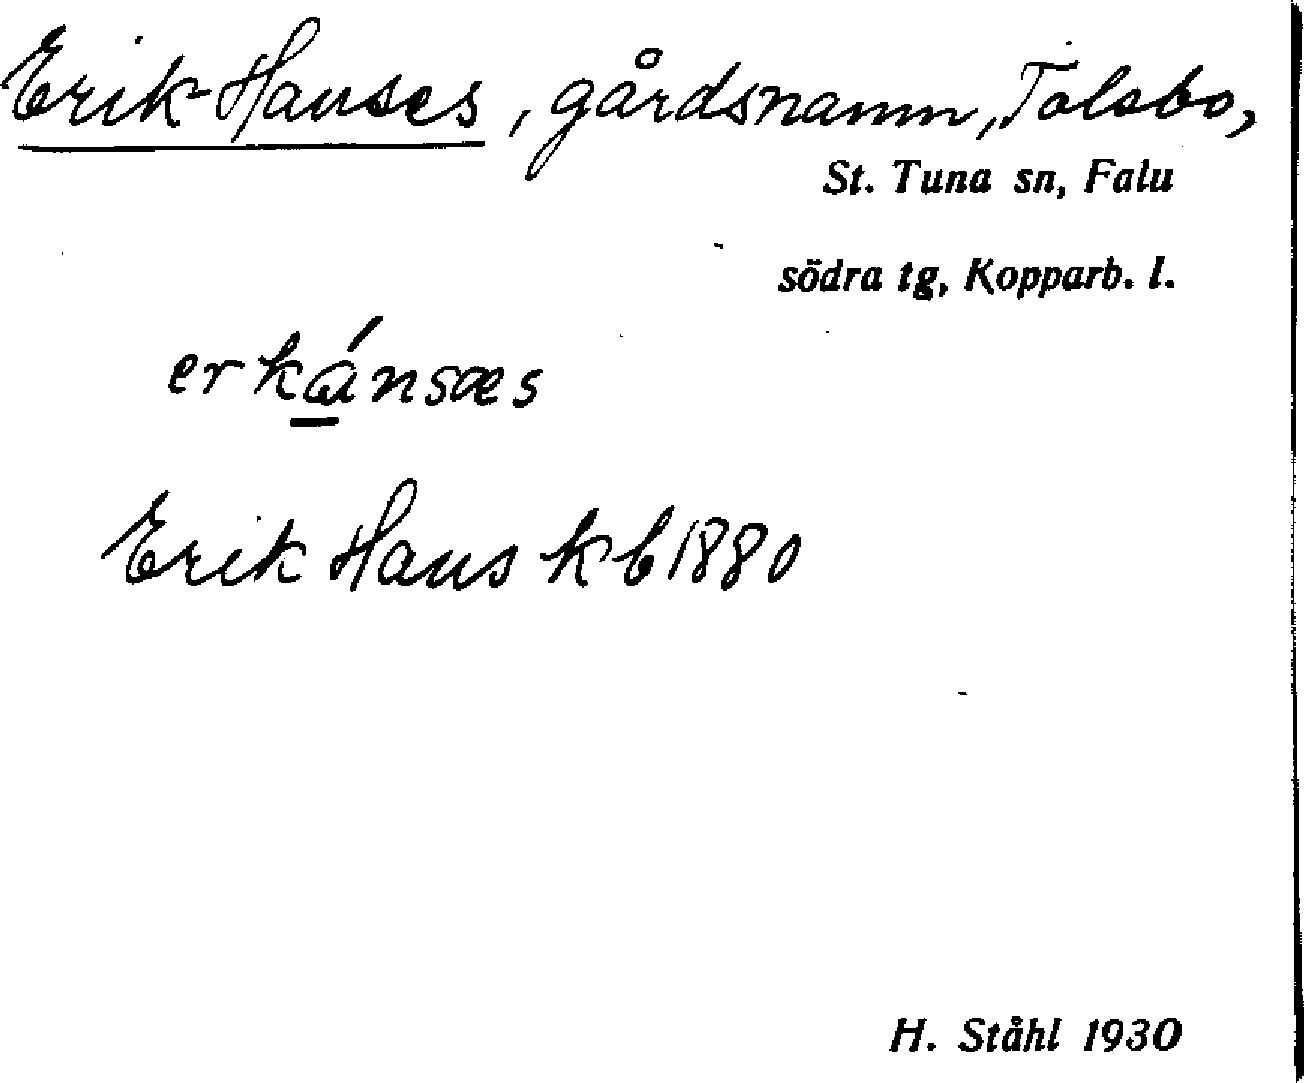 Erik-Hanses, gårdsnamn, Tolsbo,
St. Tuna sn, Falu
södra tg, Kopparb. l.
erkánsæs
Erik Hans kb 1880
H. Ståhl 1930